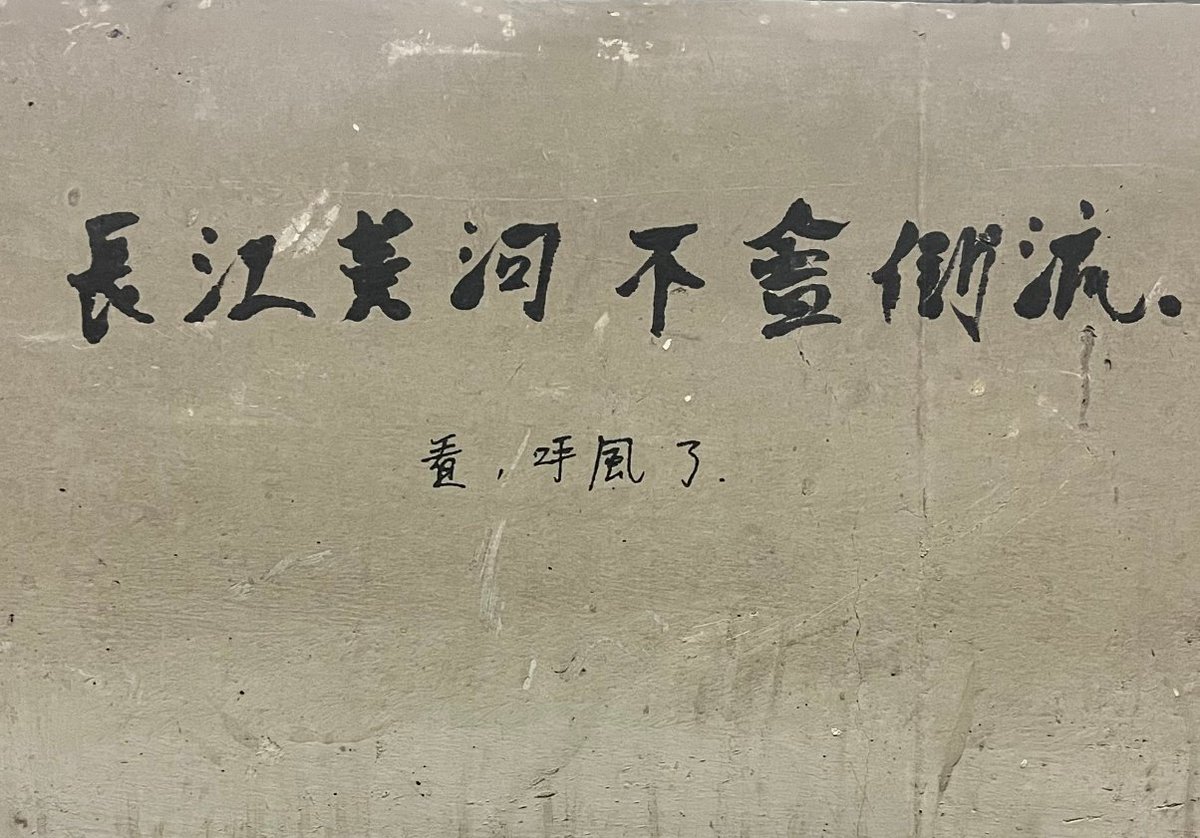 長江黄河不會倒流.
看,呼風了.